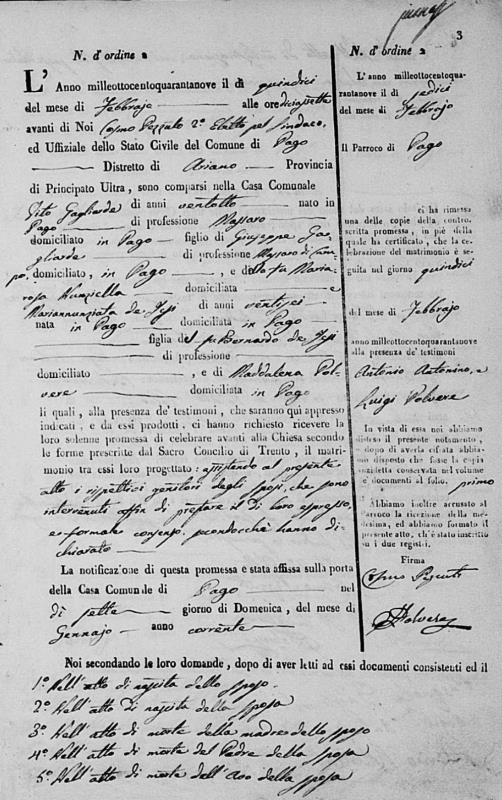 3
N. d'ordine 2
L'Anno milleottocentoquarantanove il dì quindici
del mese di Febbrajo alle ore diciassette
avanti di Noi Cosmo Pezzuto 2º Eletto pel Sindaco,
ed Uffiziale dello Stato Civile del Comune di Pago
Distretto di Ariano Provincia
di Principato Ultra, sono comparsi nella Casa Comunale
Vito Gagliarde di anni ventotto nato in
Pago di professione Massaro
domiciliato in Pago figlio di Giuseppe Ga-
gliarde di professione Massaro di Cam-
po, domiciliato, in Pago, e della fu Maria-
rosa Nunziella domiciliata e
Mariannunziata de Jesi di anni ventisei
nata in Pago domiciliata in Pago
figlia del fu Bernardo de Jesi
di professione
domiciliato, e di Maddalena Pol-
vere domiciliata in Pago
li quali, alla presenza de' testimoni, che saranno quì appresso
indicati, e da essi prodotti, ci hanno richiesto ricevere la
loro solenne promessa di celebrare avanti alla Chiesa secondo
le forme prescritte dal Sacro Concilio di Trento, il matri-
monio tra essi loro progettato: assistendo al presente
atto i rispettivi genitori degli sposi, che sono
intervenuti affin di prestare il di loro espresso,
e formale consenso, secondocchè hanno di-
chiarato
La notificazione di questa promessa e stata affissa sulla porta
della Casa Comunale di Pago nel
dì sette giorno di Domenica, del mese di
Gennajo anno corrente
Noi secondando le loro domande, dopo di aver letti ad essi documenti consistenti ed il
1º Nell'atto di nascita dello sposo
2º Nell'atto di nascita della sposa
3º Nell'atto di morte della madre dello sposo
4º Nell'atto di morte del Padre della sposa
5º Nell'atto di morte dell'Avo della sposa
N. d'ordine 2
L'anno milleottocentoquar-
rantanove il dì sedici
del mese di Febbrajo
Il Parroco di Pago
ci ha rimessa
una delle copie della contro-
scritta promessa, in piè della
quale ha certificato, che la ce-
lebrazione del matrimonio è se-
guita nel giorno quindici
del mese di Febbrajo
anno milleottocentoquarantanove
alla presenza de' testimoni
Antonio Antonino, e
Luigi Polvere
In vista di essa noi abbiamo
disteso il presente notamento,
dopo di averla cifrata abbia-
mo disposto che fosse la copia
anzidetta conservata nel volume
de' documenti al folio. primo
Abbiamo inoltre accusato al
Parroco la ricezione della me-
desima, ed abbiamo formato il
presente atto, ch'è stato inscritto
su i due registri.
Firma
Polvere